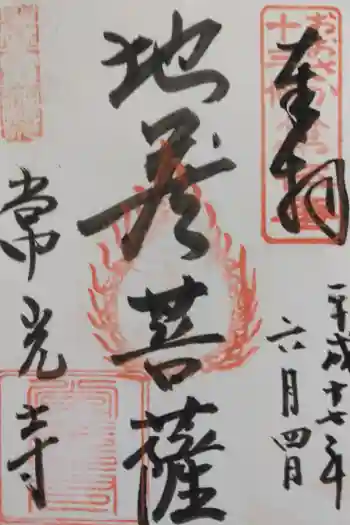 奉拝
平成十七年
六月四日
地蔵菩薩
常光寺